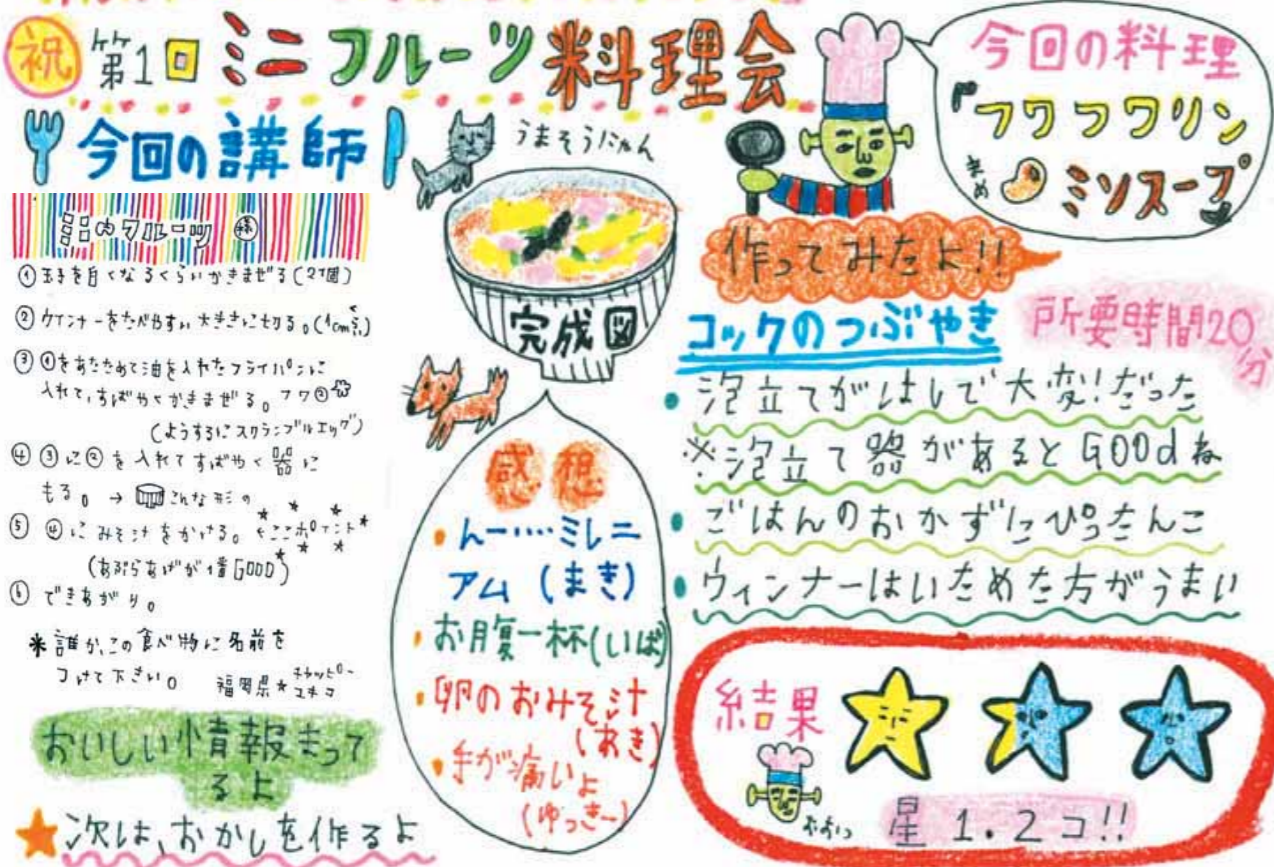 祝 第1回 ミニフルーツ料理会
今回の講師
うまそうにゃん
今回の料理
『フワフワリン
まめ ミソスープ』
のフルーツ 様
① 玉子を白くなるくらいかきまぜる(2コ個)
② ウインナーをたべやすい大きさに切る。(1cmぐらい)
③ ①をあたためて油を入れたフライパンに
入れて、すばやくかきまぜる。フワ②
(ようするにスクランブルエッグ)
④ ③に②を入れてすばやく器に
もる。→ こんな形の
⑤ ④にみそ汁をかける。←ここポイント
(あぶらあげが1番GOOD)
⑥ できあがり。
*誰か、この食べ物に名前を
つけて下さい。 福岡県★チャッピーユキコ
おいしい情報まって
るよ
次は、おかしを作るよ
完成図
感想
・んー……ミレニ
アム(まき)
・お腹一杯(いば)
・卵のおみそ汁
(あき)
・手が痛いよ
(ゆっきー)
作ってみたよ!!
コックのつぶやき
所要時間20分
・泡立てがはしで大変!だった
※泡立て器があるとGOODね
・ごはんのおかずにぴったんこ
・ウィンナーはいためた方がうまい
結果
おおいっ
星 1.2コ!!